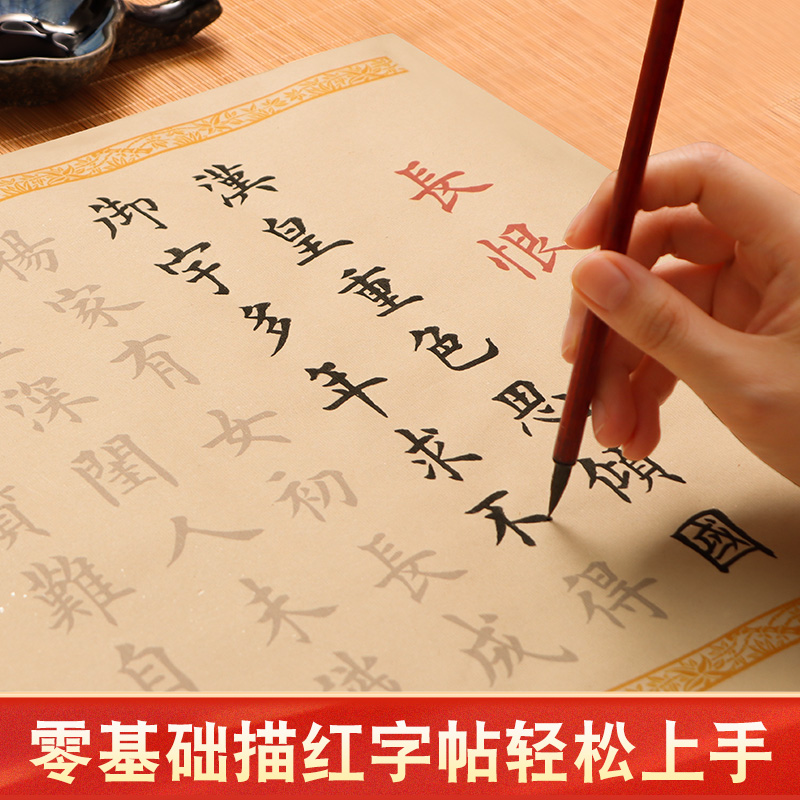 長恨
漢皇重色思傾國
御宇多年求不得
楊家有女初長成
深閨人未識
質難自
零基础描红字帖轻松上手